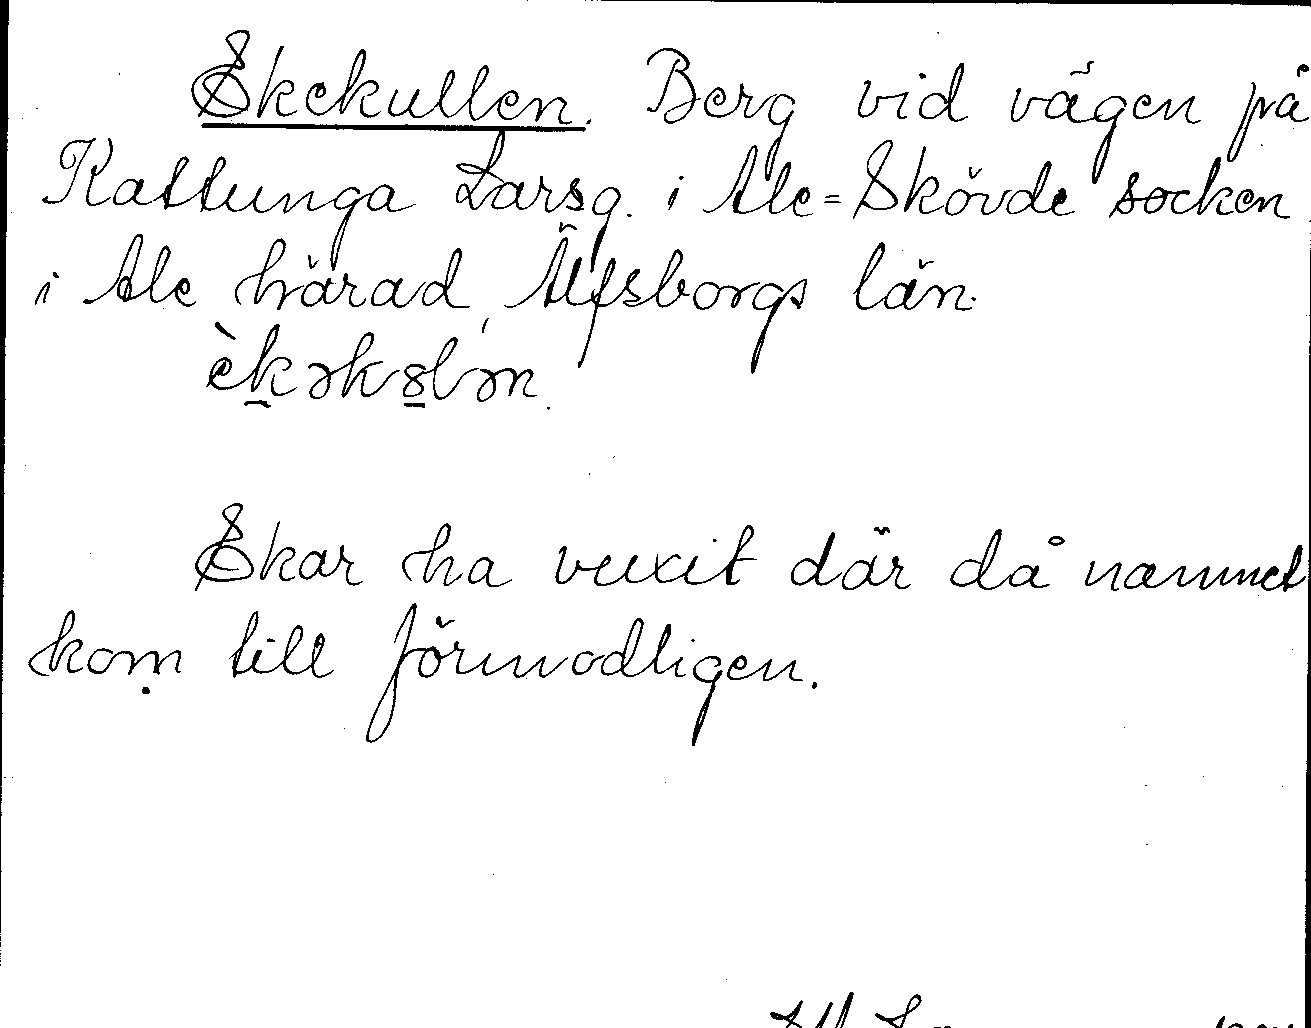 Ekekullen. Berg vid vägen på
Kattunga Larsg. i Ale=Skövde socken
i Ale härad, Älfsborgs län.
Ekar ha vuxit där då namnet
kom till förmodligen.